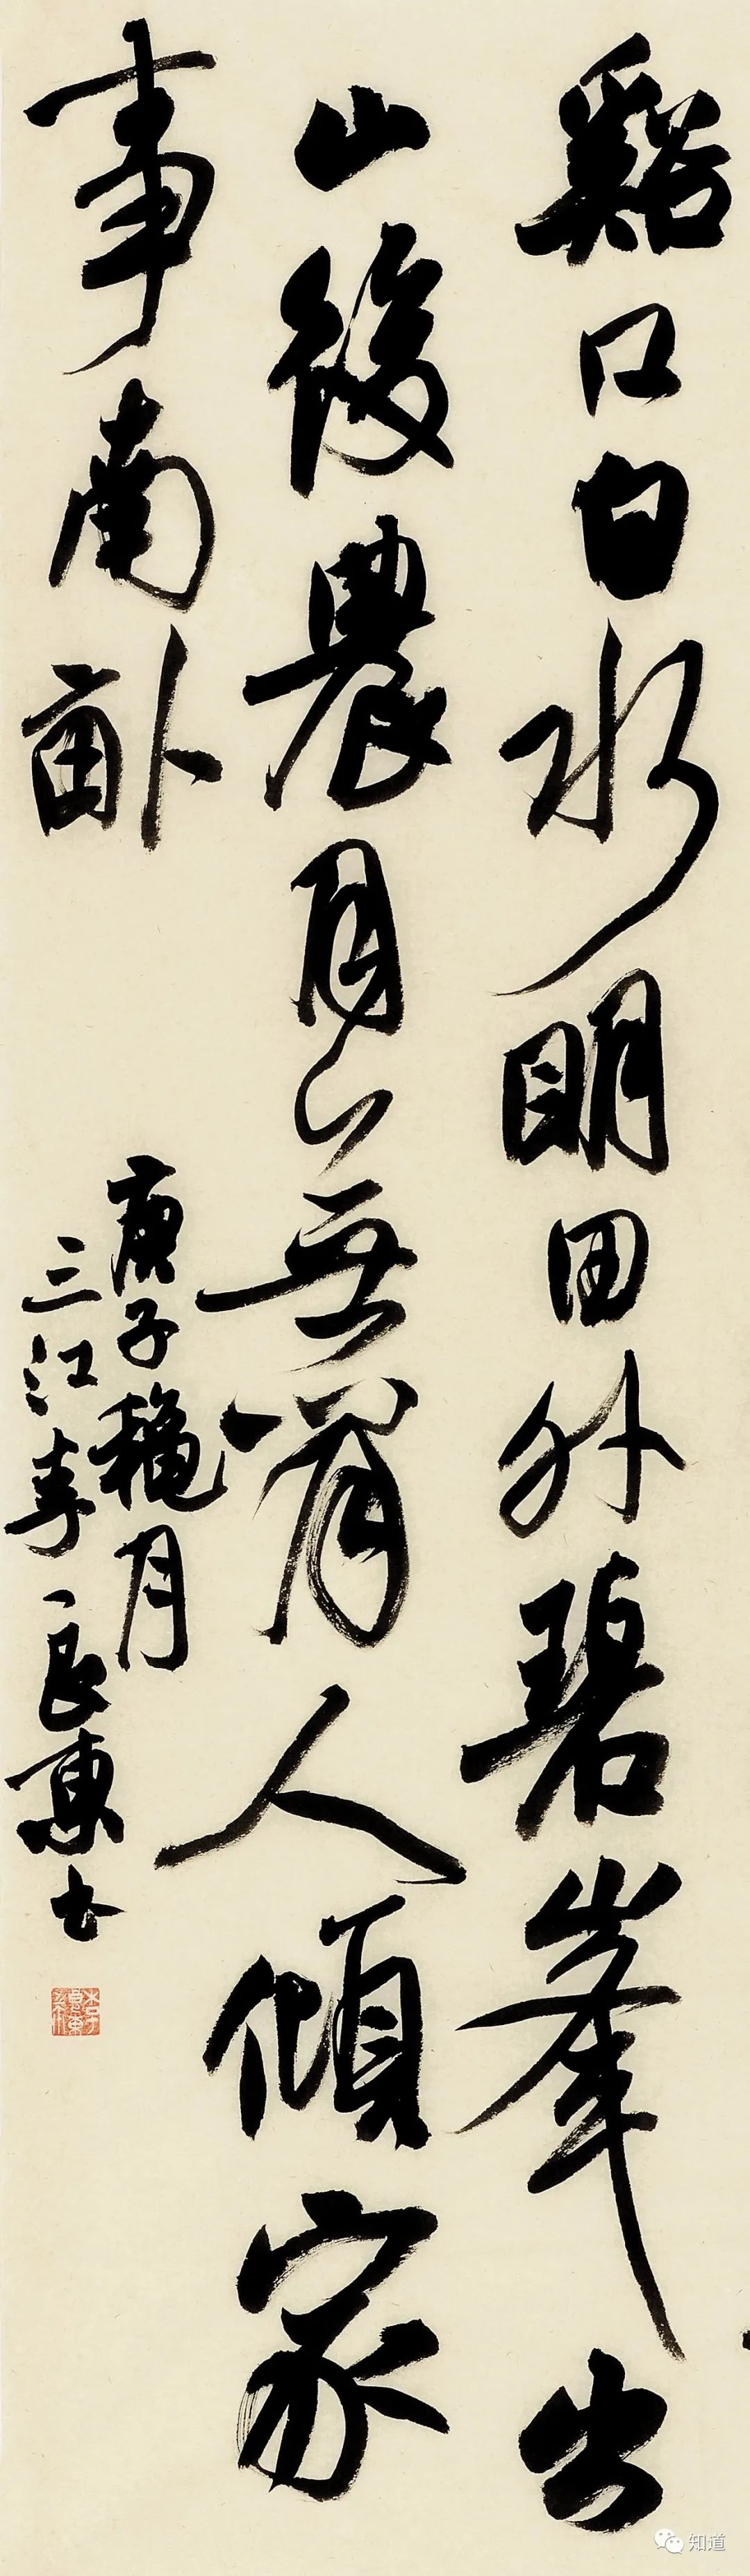 谿口白水明田外碧峯出
山後農月無閒人傾家
事南畝
庚子穐月
三江李良東书
知道